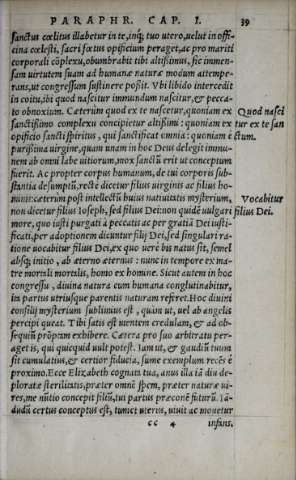 PARAPHR. CAP. I. 39
sanctus cœlitus illabetur in te, inq́; tuo utero, uelut in offi-
cina cœlesti, sacri fœtus opificium peraget, ac pro mariti
corporali cõplexu, obumbrabit tibi altißimus, sic immen-
sam uirtutem suam ad humanæ naturæ modum attempe-
rans, ut congressum sustinere poßit. Vbi libido intercedit
in coitu, ibi quod nascitur immundum nascitur, & pecca-
to obnoxium. Cæterùm quod ex te nascetur, quoniam ex
sanctißimo complexu concipietur altißimi: quoniam ex
opificio sancti spiritus, qui sanctificat omnia: quoniam è
purißima uirgine, quam unam in hoc Deus delegit immu-
nem ab omni labe uitiorum, mox sanctũ erit ut conceptum
fuerit. Ac propter corpus humanum, de tui corporis sub-
stantia desumptũ, rectè dicetur filius uirginis ac filius ho-
minis: cæterùm post intellectũ huius natiuitatis mysterium,
non dicetur filius Ioseph, sed filius Dei: non quidẽ uulgari
more, quo iusti purgati à peccatis ac per gratiã Dei iusti-
ficati, per adoptionem dicuntur filij Dei, sed singulari ra-
tione uocabitur filius Dei, ex quo uerè bis natus sit, semel
absq; initio, ab æterno æternus: nunc in tempore ex ma-
tre mortali mortalis, homo ex homine. Sicut autem in hoc
congressu, diuina natura cum humana conglutinabitur,
ita partus utriusque parentis naturam referet. Hoc diuini
consilij mysterium sublimius est, quàm ut, uel ab angelis
percipi queat. Tibi satis est mentem credulam, & ad ob-
sequiũ prõpam exhibere. Cætera pro suo arbitratu per-
aget is, qui quicquid uult potest. Iam ut, & gaudiũ tuum
sit cumulatius, & certior fiducia, sume exemplum recẽs è
proximo. Ecce Elizabeth cognata tua, anus illa iã diu de-
ploratæ sterilitatis, præter omnẽ spem, præter naturæ ui-
res, me nũtio concepit filiũ, tui partus præconẽ futurũ. Iã-
dudũ certus conceptus est, tumet uterus, uiuit ac mouetur
cc 4 infans,
Quod nasci
tur ex te san
ctum.
Vocabitur
filius Dei.